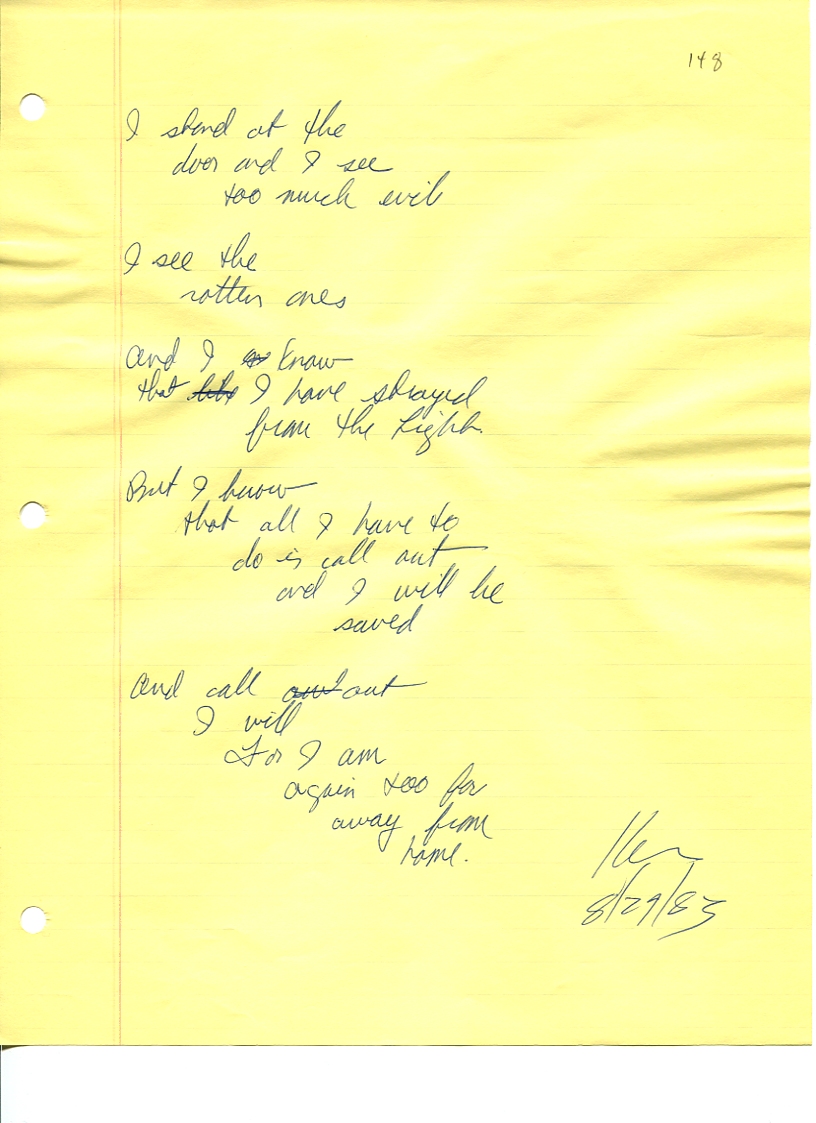 148
I stand at the
door and I see
too much evil
I see the
rotten ones
And I know
that I have strayed
from the Light.
But I know
that all I have to
do is call out
and I will be
saved
And call out
I will
For I am
again too far
away from
home.
Ken
8/29/83